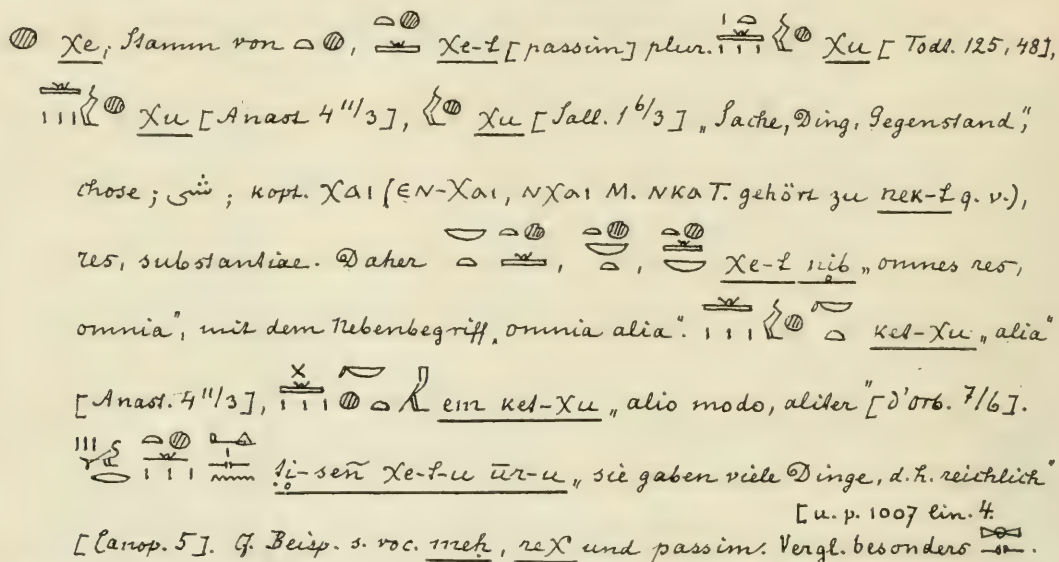 χe, Stamm von , χe-t [passim] plur. χu [Todt. 125, 48],
χu [Anast. 4 11/3], χu [Sall. 1 6/3] „Sache, Ding, Gegenstand“,
chose; شى; kopt. ⲭⲁⲓ (ⲉⲛ-ⲭⲁⲓ, ⲛⲭⲁⲓ M. ⲛⲕⲁ T. gehört zu nek-t q. v.),
res, substantiae. Daher , , χe-t nib „omnes res,
omnia“, mit dem Nebenbegriff „omnia alia“. ket-χu „alia“
[Anast. 4 11/3], em ket-χu „alio modo, aliter“ [d'Orb. 7/6].
ti-sen χe-t-u ur-u „sie gaben viele Dinge, d.h. reichlich“
[u. p. 1007 lin. 4.
[Canop. 5]. Cf. Beisp. s. voc. meh, reχ und passim. Vergl. besonders .